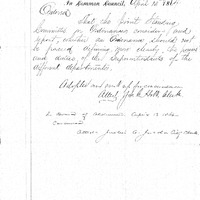 In Common Council, April 12, 186
Ordered
That the Joint Standing
Committee on Ordinances consider and
report, whether an Ordinance should not
be passed defining more clearly the powers
and duties of the Superintendents of the
different departments.
Adopted and sent up for concurrence
Attest,
Clerk
In Board of Aldermen
Concurred
Attest City Clerk